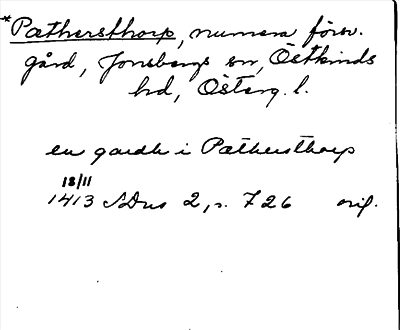 *Pæthersthorp, numera försv.
gård, Jonsbergs sn, Östkinds
hd, Österg. l.
en gardh i Pæthersthorp
18/11
1413 SDns 2, s. 726 orig.